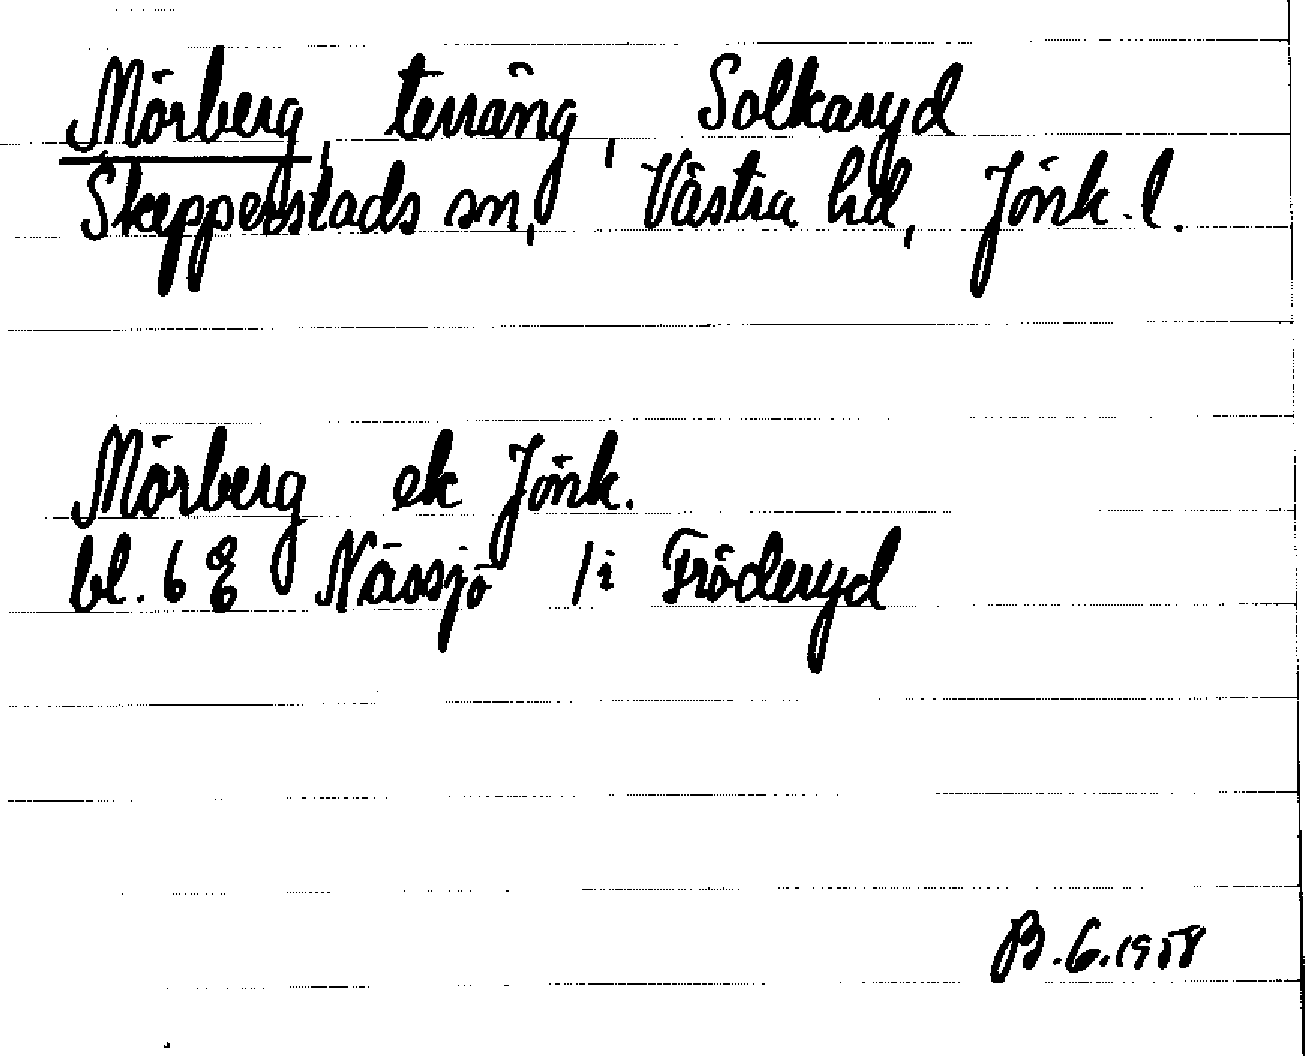 Mörberg, terräng, Solkaryd
Skepperstads sn, Västra hd, Jönk. l.
Mörberg ek Jönk.
bl. 6 E Nässjö /i Fröderyd
B.G.1958